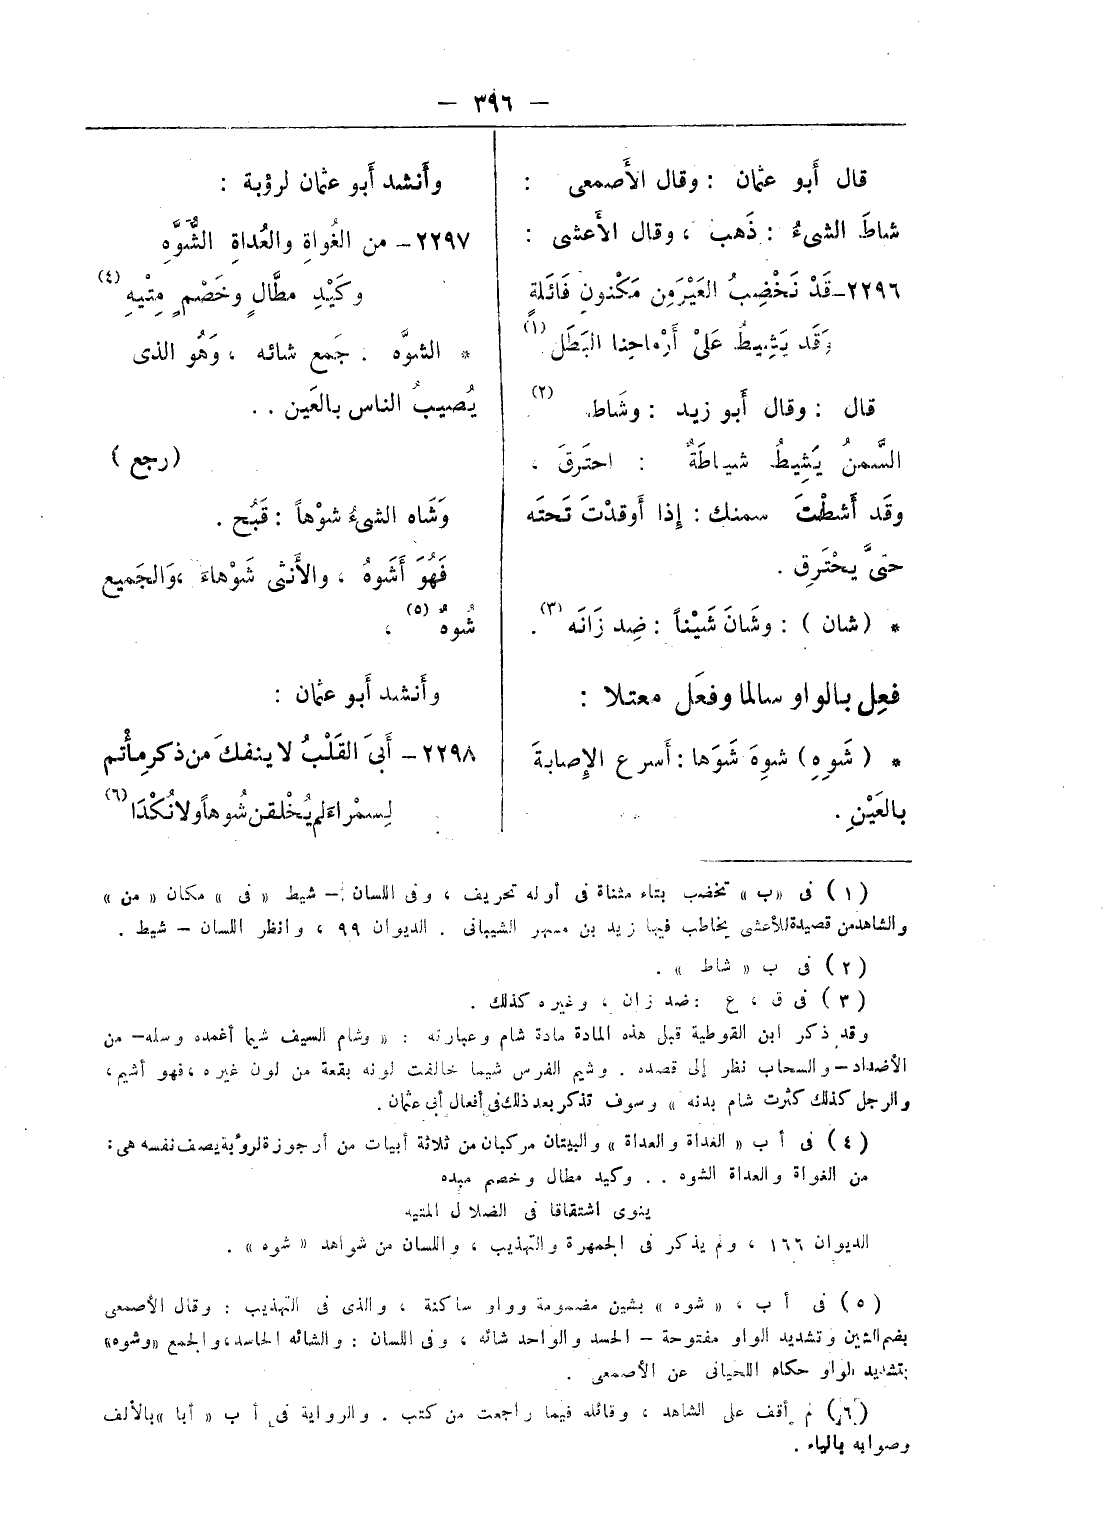 — ٣٩٦ —
قال أَبو عثمان : وقال الأَصمعى :
شاطَ الشىءُ : ذَهب ، وقال الأَعشى :
٢٢٩٦ــ قَدْ نَخْضِبُ العَيْرَ مِن مَكْنونِ فَائلَةٍ
وَقَد يَشِيطُ عَلىْ أَرْماحِنا البَطَل (١)
قال : وقال أَبو زيد : وشَاط (٢)
السَّمنُ يَشِيطُ شياطَةً : احتَرقَ ،
وقَد أَشطْتَ سمنك : إِذا أَوقدْتَ تَحتَه
حتىَّ يحْتَرِق .
* (شان ) : وشَانَ شَيْناً : ضِد زَانَه (٣) .
فعِل بالواو سالما وفعَل معتلا :
* ( شَوِهِ ) شوِهَ شَوَها : أَسرع الإِصابةَ
بالعَيْنِ .
وأَنشد أَبو عثمان لرؤبة :
٢٢٩٧ــ من الغُواةِ والعُداةِ الشُّوَّهِ
وكَيْدِ مطَّالٍ وخَصْمٍ مِتْيهِ (٤)
* الشوَّه . جَمع شائه ، وَهُو الذى
يُصيبُ الناس بالعَين . .
(رجع )
وَشَاه الشىءُ شوْهاً : قَبُح .
فَهُوَ أَشَوهُ ، والأُنثى شَوْهاءَ ،وَالجَميع
شُوهٌ (٥) ،
وأَنشد أَبو عثمان :
٢٢٩٨ــ أَبىَ القَلْبُ لا ينفكَ من ذكرِ مأْتم
لِسمْراءَ لم يُخْلقن شُوهاً ولا نُكْدَا (٦)
(١) فى «ب» تخضب بتاء مثناة فى أوله تحريف ، وفى اللسان – شيط «فى» مكان «من»
والشاهد من قصيدة للأعشى يخاطب فيها زيد بن مسهر الشيبانى . الديوان ٩٩ ، وانظر اللسان – شيط .
(٢) فى ب « شاط » .
(٣) فى ق ، ع : ضد زان ، وغيره كذلك .
وقد ذكر ابن القوطية قبل هذه المادة مادة شام وعبارته : « وشام السيف شيما أغمده وسله– من
الأضداد –والسحاب نظر إلى قصده . وشيم الفرس شيما خالفت لونه بقعة من لون غيره ،فهو أشيم،
والرجل كذلك كثرت شام بدنه » وسوف تذكر بعد ذلك فى أفعال أبى عثمان.
(٤) فى أ ب « الغداة والعداة » والبيتان مركبان من ثلاثة أبيات من أرجوزة لرؤبة يصف نفسه هى:
من الغواة والعداة الشوه . . وكيد مطال وخصم مبده
ينوى اشتقاقا فى الضلال المتيه
الديوان ١٦٦ ، ولم يذكر فى الجمهرة والتهذيب ، واللسان من شواهد « شوه » .
(٥) فى أ ب ، « شوه » بشين مضمومة وواو ساكنة ، والذى فى التهذيب : وقال الأصمعى
بضم الشين وتشديد الواو مفتوحة – الحسد والواحد شائه ، وفى اللسان : والشائه الحاسد،والجمع «وشوه»
بتشديد الواو حكاه اللحيانى عن الأصمعى .
(٦) لم أقف على الشاهد ، وقائله فيما راجعت من كتب . والرواية فى أ ب « أبا »بالألف
وصوابه بالياء .